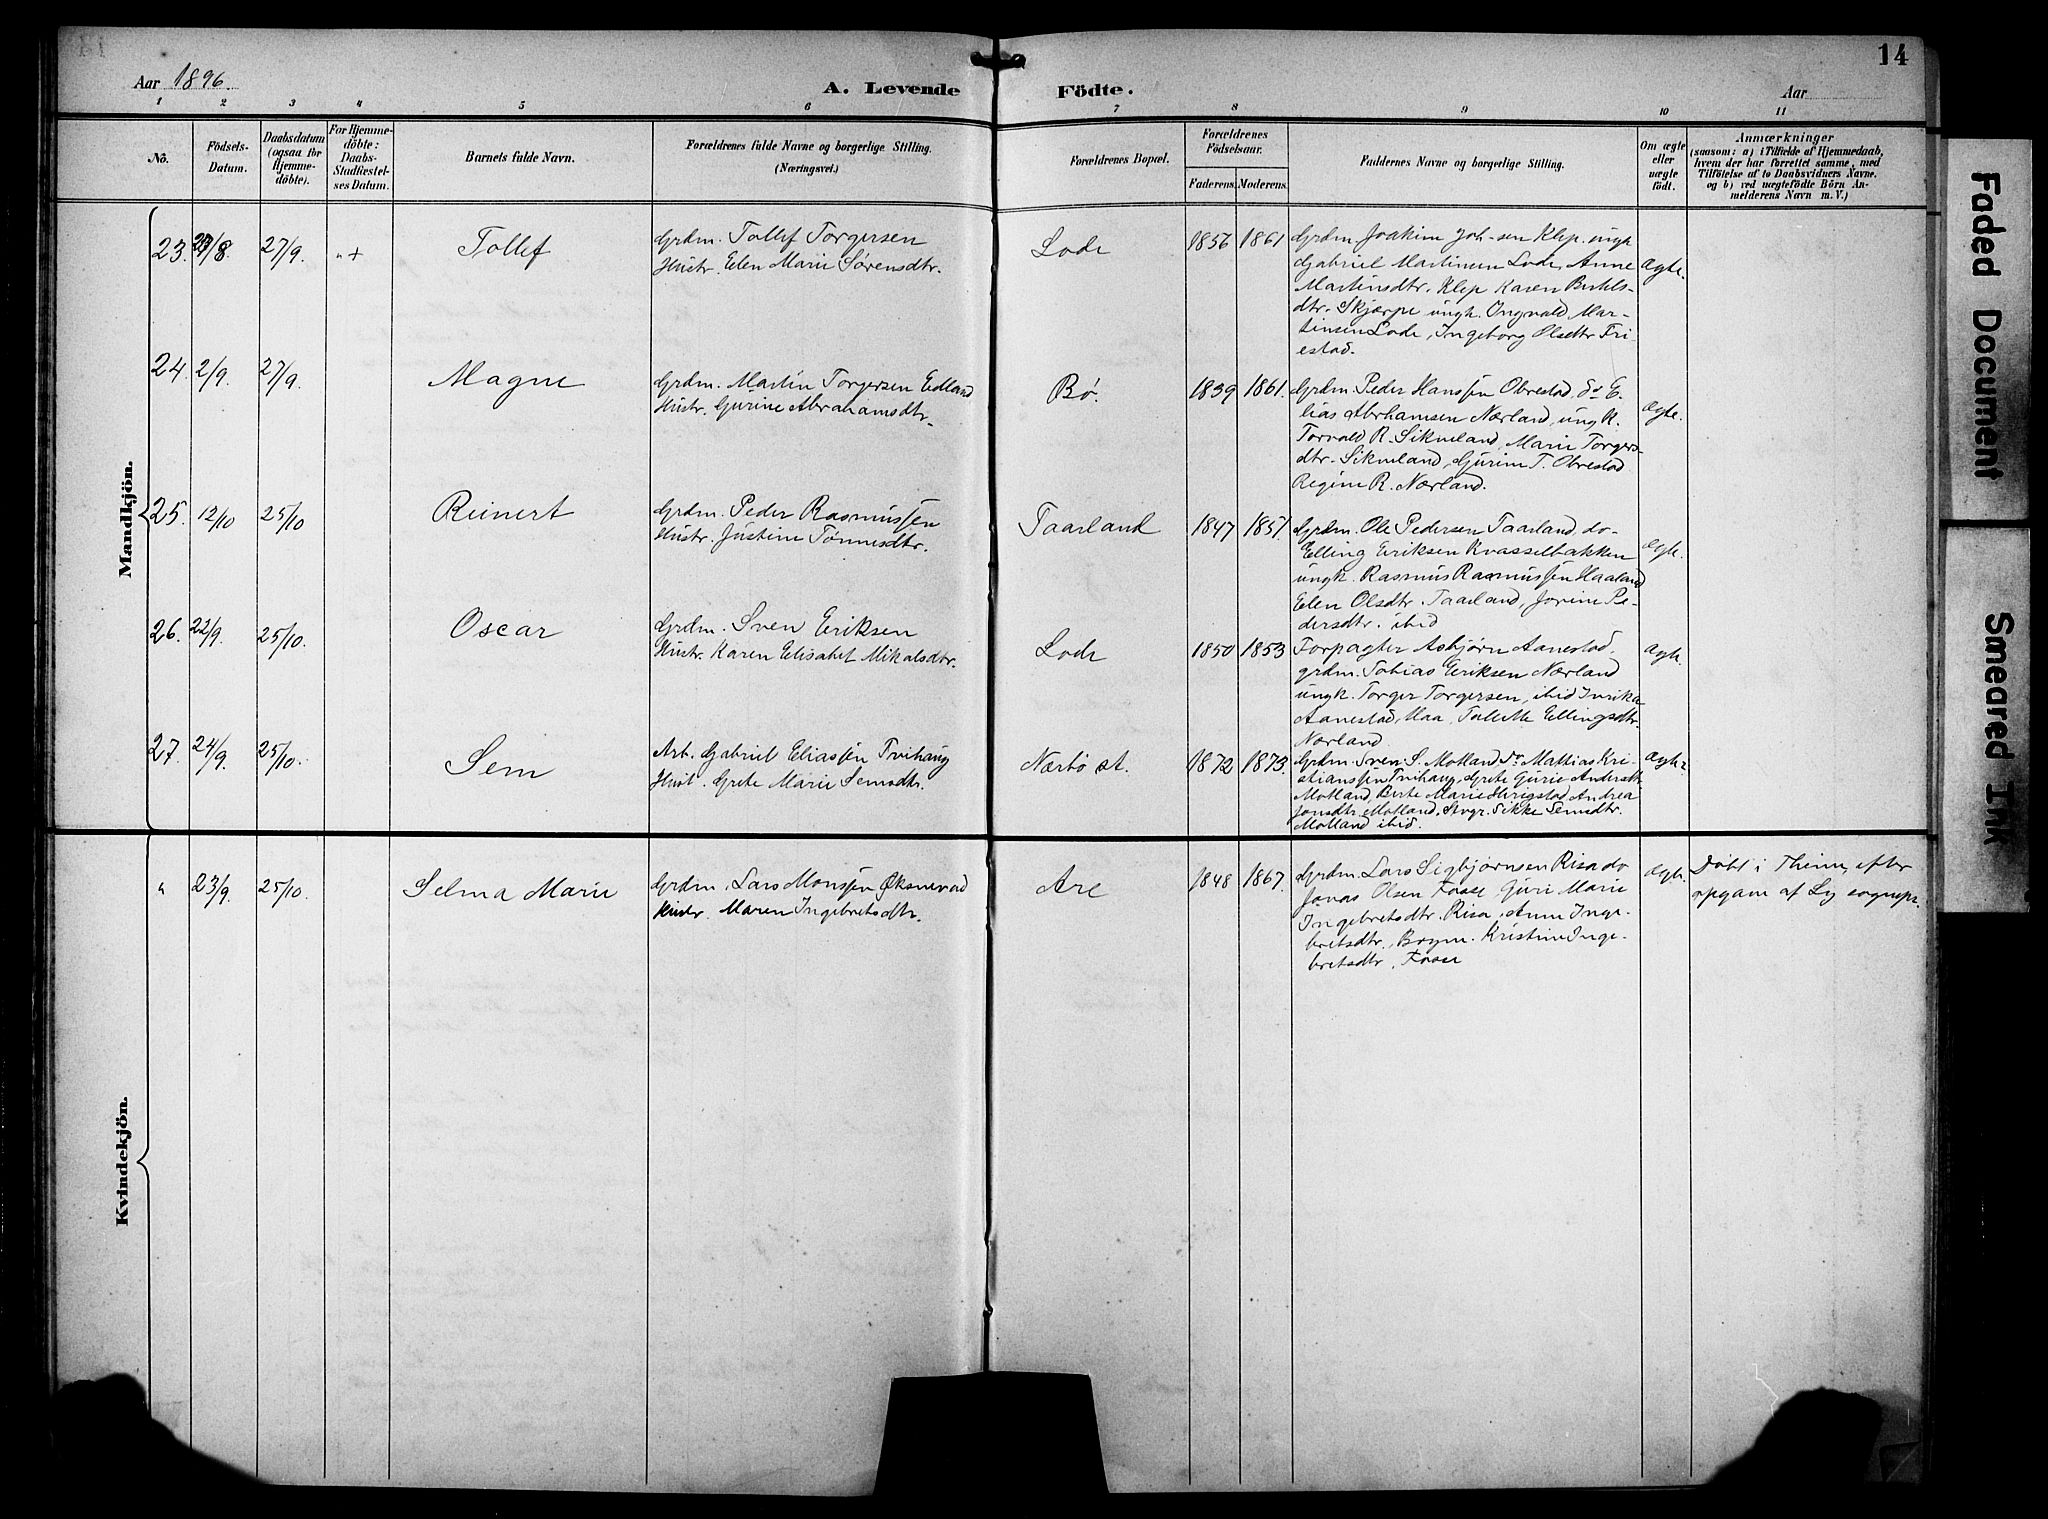 14
Aar 1896.
A. Levende Födte.
Aar
1 2 3 4 5 6 7 8 9 10 11
No.
Födsels-
Datum.
Daabsdatum
(ogsaa for
Hjemme-
döbte).
For Hjemme-
döbte:
Daabs-
Stadfæstel-
ses Datum.
Barnets fulde Navn.
Forældrenes fulde Navne og borgerlige Stilling.
(Næringsvei.)
Forældrenes Bopæl.
Forældrenes
Födselsaar.
Faderens. Moderens.
Faddernes Navne og borgerlige Stilling.
Om ægte
eller
uægte
födt.
Anmærkninger
(saasom: a) i Tilfælde af Hjemmedaab,
hvem der har forrettet samme, med
Tilföielse af to Daabsvidners Navne.
og b) ved uægtefödte Börn An-
melderens Navn m. V.)
Mandkjön.
23. /8. 27/9. Tollef
Grdm. Tollef Torgersen
Hustr. Elen Marie Sørensdtr.
Lode 1856 1861
Grdm. Joakim Joh-sen Klep. ungk
Gabriel Martinsen Lode, Anne
Martinsdtr. Klep Karen
dtr. Skjærpe ungk. Ingvald Mar-
tinsen Lode, Ingeborg Olsdtr Fri-
estad.
ægte.
24. 2/9. 27/9. Magne
Grdm. Martin Torgersen Edland
Hustr. Gurine Abrahamsdtr.
Bø. 1839 1861.
Grdm. Peder Hanssen Obrestad, do E-
lias Abrhamsen Nærland, ungk.
Torvald R. Sikveland, Marie Torgers-
dtr. Sikveland, Gurine T. Obrestad
Regine R. Nærland.
ægte.
25. 12/10 25/10 Reinert
Grdm. Peder Rasmussen
Hustr. Justine Tønnesdtr.
Taarland 1847 1851
Grdm. Ole Pedersen Taarland, do-
Elling Eriksen Kvasselbakken
ungk. Rasmus Rasmussen Haaland
Elen Olsdtr. Taarland, Jorine Pe-
dersdtr. ibid
ægte.
26. 22/9. 25/10. Oscar
Grdm. Sven Eriksen
Hustr. Karen Elisabet Mikalsdtr.
Lode 1850 1853
Forpagter Asbjørn Aanestad,
grdm. Tobias Eriksen Nærland
ungk. Torger Torgersen, ibid Inrika
Aanestad, Maa, Tallette Ellingsdtr.
Nærland
ægte.
27. 24/9. 25/10. Sem
Arb. Gabriel Eliassen Tvihaug
Hust. Grete Marie Semsdtr.
Nærbø st. 1872 1873.
Grdm. Sven S. Motland do Mathias Kri-
stianssen Tvihaug, Grete Gurie Andersdtr.
Motland, Berte Marie Andrea
Jonsdtr. Motland, Sikke Semsdtr.
Motland ibid.
ægte
Kvindekjön.
23/9. 25/10. Selma Marie
Grdm. Lars Monssen Øksnevad
Hustr. Maren Ingebretsdtr.
Are 1848 1867.
Grdm. Lars Sigbjørnsen Risa do
Jonas Olsen Fosse Guri Marie
Ingebretsdtr. Risa, Anne Inge-
bretsdtr., Bogm. Kristine Inge-
bretsdtr. Fosse
ægte.
Døbt i Thime, efter
opgave af Ly sognepr.
Faded Document
Smeared Ink